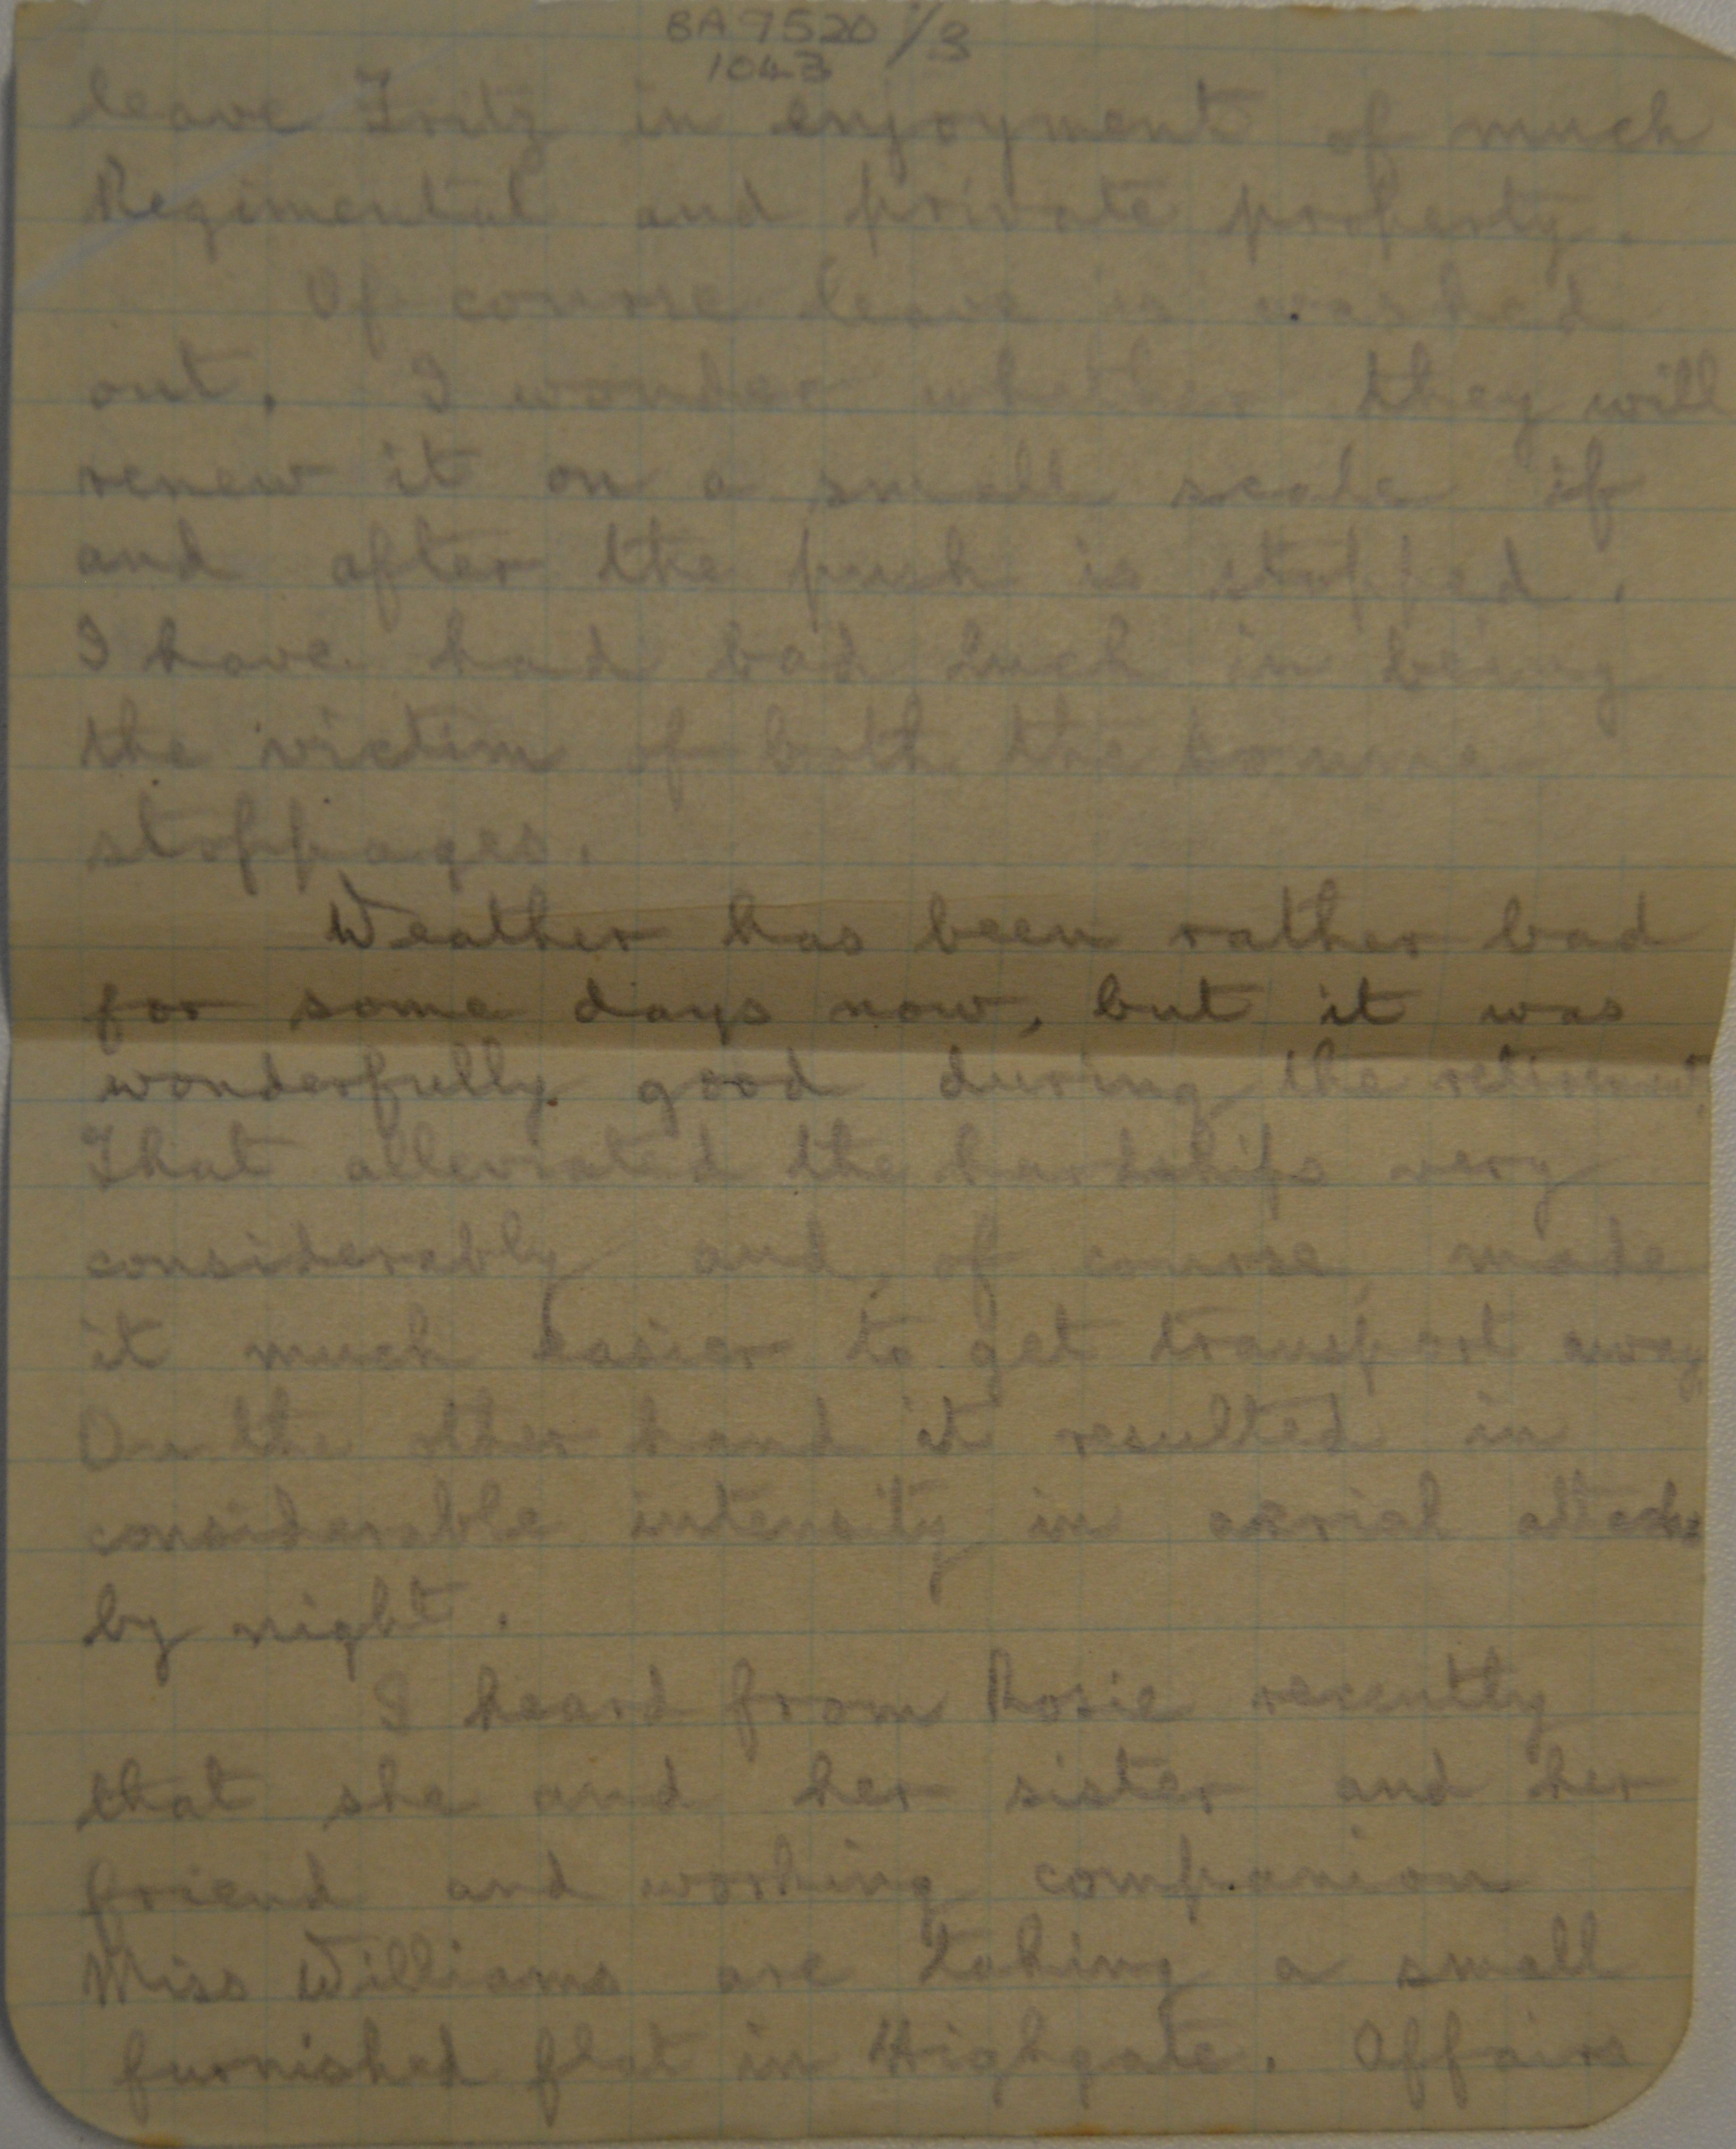 BA 9520 1/3
1043
leave Fritz in enjoyment of much
Regimental and private property.
Of course leave is washed
out. I wonder whether they will
renew it on a small scale if
and after the push is stopped.
I have had bad luck in being
the victim of both the Somme
stoppages.
Weather has been rather bad
for some days now, but it was
wonderfully good during the retirement.
That alleviated the hardships very
considerably and, of course, made
it much easier to get transport away.
On the other hand it resulted in
considerable intensity in aerial attacks
by night.
I heard from Rosie recently
that she and her sister and her
friend and working companion
Miss Williams are taking a small
furnished flat in Highgate. Affairs